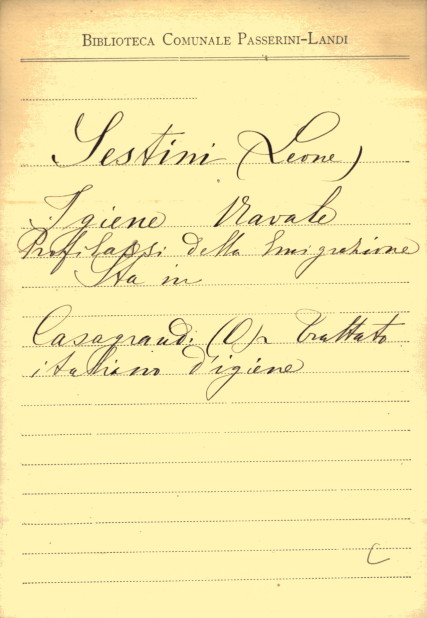 Biblioteca Comunale Passerini-Landi
Sestini (Leone)
Igiene Navale
Profilassi della Emigrazione
Sta in
Casagrandi (O) Trattato
italiano d'igiene
C